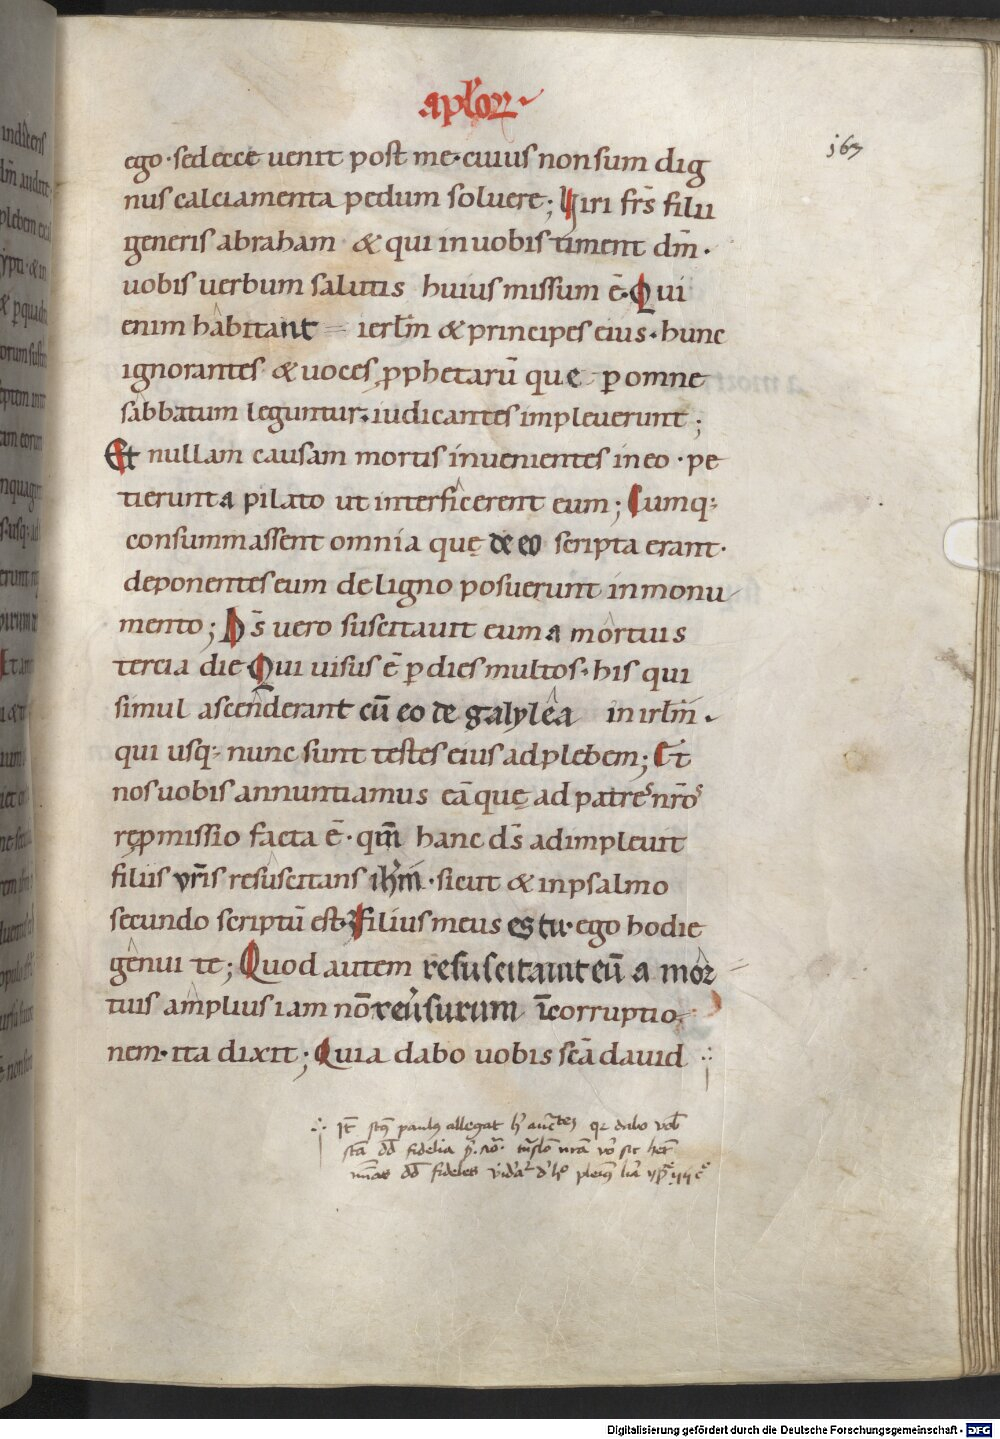 aploꝝ
167
ego · sed ecce uenit post me · cuius non sum dig
nus calciamenta pedum soluere; Uiri frs̄ filii
generis abraham & qui in uobis timent dm̄ ·
uobis uerbum salutis huius missum ē · Qui
enim habitant = ierłm & principes eius · hunc
ignorantes & uoces ꝓphetarū que ꝑ omne
sabbatum leguntur · iudicantes impleuerunt ;
Et nullam causam mortis inuenientes in eo · pe
tierunt a pilato ut interficerent eum ; Cumq;
consummassent omnia quę de eo scripta erant ·
deponentes eum de ligno posuerunt in monu
mento ; Ds̄ uero suscitauit eum a mortuis
tercia die Qui uisus ē ꝑ dies multos · his qui
simul ascenderant cū eo de galylea in irłm ·
qui usq; nunc sunt testes eius ad plebem ; Et
nos uobis annuntiamus eā quę ad patres nr̄os
rep̱missio facta ē · qm̄ hanc ds̄ adimpleuit
filiis vr̄is resuscitans ihm̄ · sicut & in psalmo
secundo scriptū est · Filius meus es tu · ego hodie
genui te ; Quod autem resuscitauit eū a mor
tuis amplius iam nō reu'surum ī corruptio
nem · ita dixit ; Quia dabo uobis scā dauid
paulus allegat dabo vob
fidelia
dd fideles